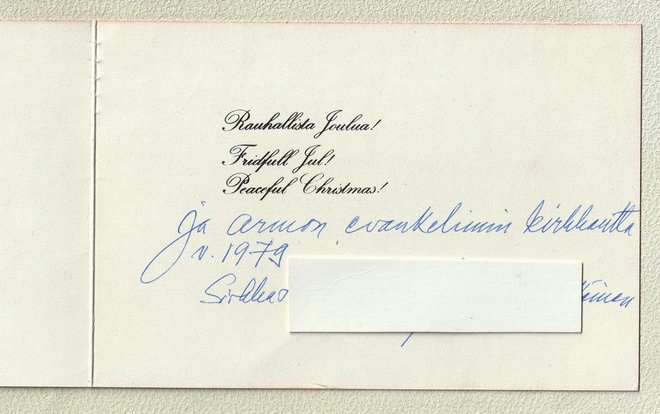 Rauhallista Joulua!
Fridfull Jul!
Peaceful Christmas!
ja armon evankeliumin kirkkautta
v. 1979
Sirkka